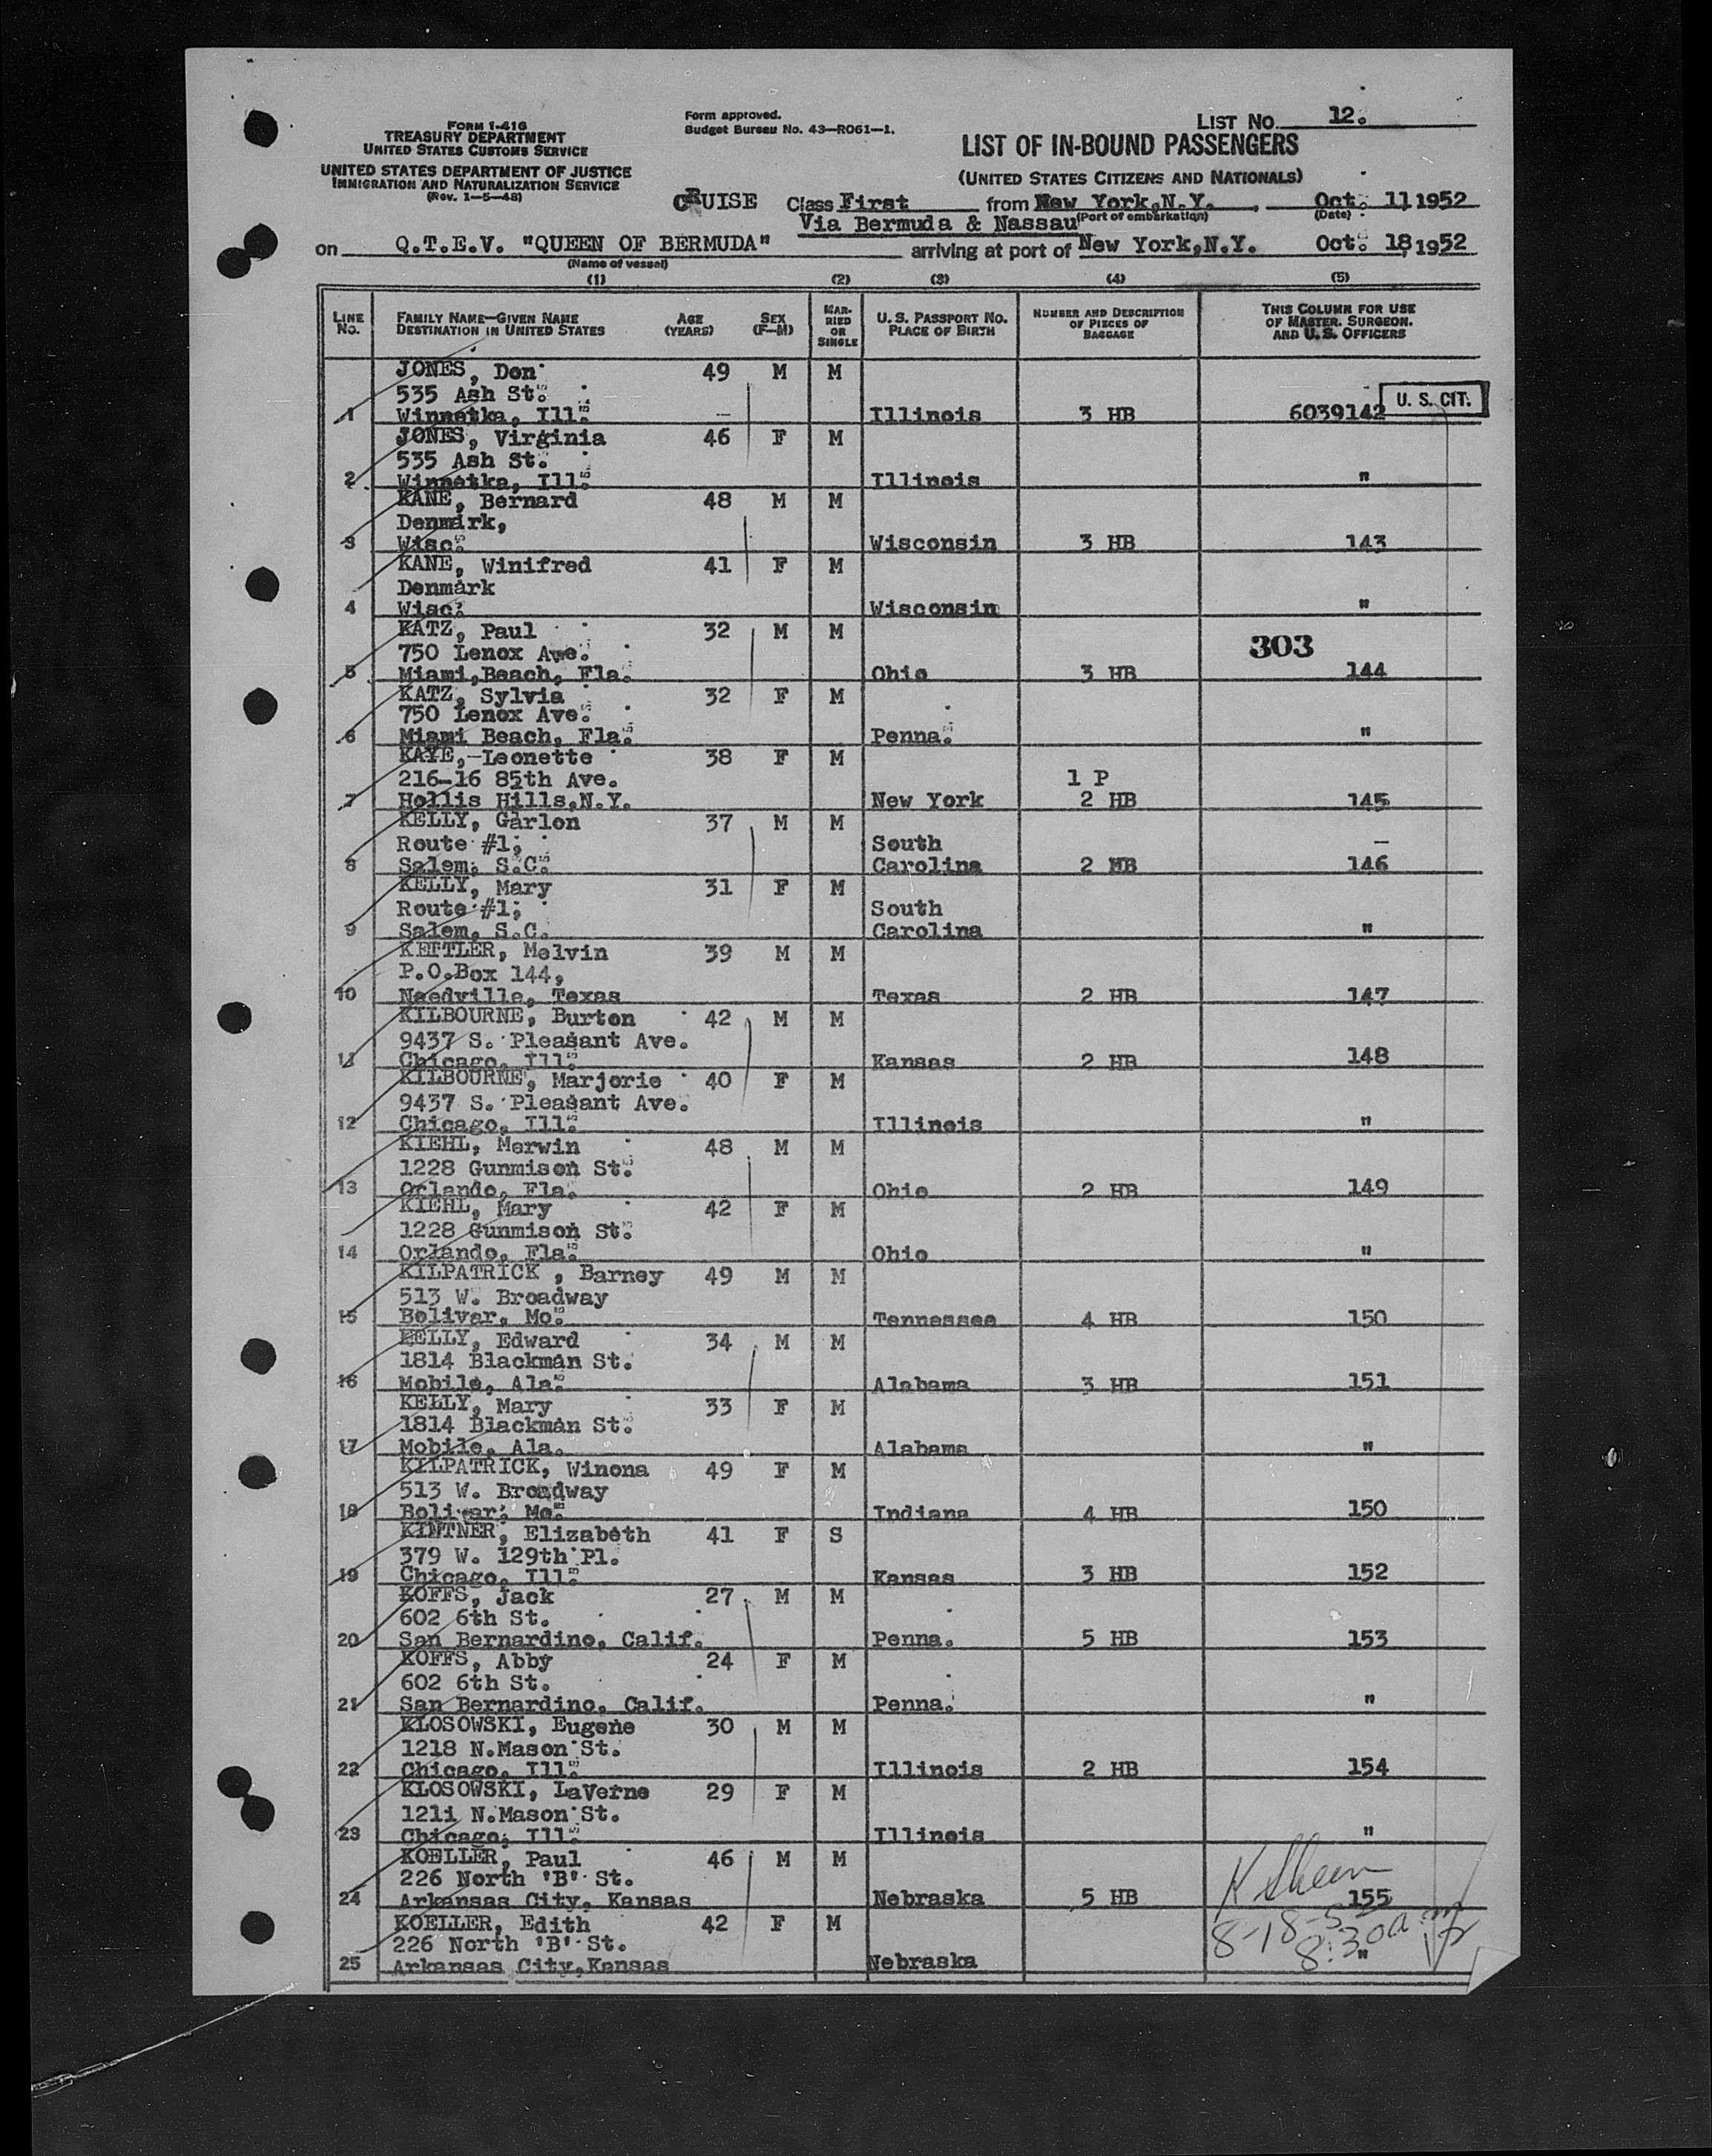 LIST NO. 12.
FORM I-416
TREASURY DEPARTMENT
UNITED STATES CUSTOMS SERVICE
UNITED STATES DEPARTMENT OF JUSTICE
IMMIGRATION AND NATURALIZATION SERVICE
(Rev. 1-5-48)
Form approved.
Budget Bureau No. 43-R061-1.
LIST OF IN-BOUND PASSENGERS
(UNITED STATES CITIZENS AND NATIONALS)
CRUISE Class First from New York,N.Y., Oct. 11,1952
(Port of embarkation) (Date)
Via Bermuda & Nassau
on Q.T.E.V. "QUEEN OF BERMUDA" arriving at port of New York,N.Y. Oct. 18,1952
(Name of vessel)
(1) (2) (3) (4) (5)
LINE NO. FAMILY NAME—GIVEN NAME DESTINATION IN UNITED STATES AGE (YEARS) SEX (F—M) MARRIED OR SINGLE U. S. PASSPORT NO. PLACE OF BIRTH NUMBER AND DESCRIPTION OF PIECES OF BAGGAGE THIS COLUMN FOR USE OF MASTER, SURGEON, AND U. S. OFFICERS
JONES, Don 49 M M
535 Ash St. U. S. CIT.
1 Winnetka, Ill. Illinois 3 HB 6039142
JONES, Virginia 46 F M
535 Ash St.
2 Winnetka, Ill. Illinois "
KANE, Bernard 48 M M
Denmark,
3 Wisc. Wisconsin 3 HB 143
KANE, Winifred 41 F M
Denmark
4 Wisc. Wisconsin "
KATZ, Paul 32 M M
750 Lenox Ave. 303
5 Miami,Beach, Fla. Ohio 3 HB 144
KATZ, Sylvia 32 F M
750 Lenox Ave.
6 Miami Beach, Fla. Penna. "
KAYE, Leonette 38 F M
216-16 85th Ave. 1 P
7 Hollis Hills,N.Y. New York 2 HB 145
KELLY, Garlon 37 M M
Route #1, South
8 Salem, S.C. Carolina 2 HB 146
KELLY, Mary 31 F M
Route #1, South
9 Salem, S.C. Carolina "
KETTLER, Melvin 39 M M
P.O.Box 144,
10 Needville, Texas Texas 2 HB 147
KILBOURNE, Burton 42 M M
9437 S. Pleasant Ave.
11 Chicago, Ill. Kansas 2 HB 148
KILBOURNE, Marjorie 40 F M
9437 S. Pleasant Ave.
12 Chicago, Ill. Illinois "
KIEHL, Merwin 48 M M
1228 Gunmison St.
13 Orlando, Fla. Ohio 2 HB 149
KIEHL, Mary 42 F M
1228 Gunmison St.
14 Orlando, Fla. Ohio "
KILPATRICK , Barney 49 M M
513 W. Broadway
15 Bolivar, Mo. Tennessee 4 HB 150
KELLY, Edward 34 M M
1814 Blackman St.
16 Mobile, Ala. Alabama 3 HB 151
KELLY, Mary 33 F M
1814 Blackman St.
17 Mobile, Ala. Alabama "
KILPATRICK, Winona 49 F M
513 W. Broadway
18 Bolivar, Mo. Indiana 4 HB 150
KINTNER, Elizabeth 41 F S
379 W. 129th Pl.
19 Chicago, Ill. Kansas 3 HB 152
KOFFS, Jack 27 M M
602 6th St.
20 San Bernardino, Calif. Penna. 5 HB 153
KOFFS, Abby 24 F M
602 6th St.
21 San Bernardino, Calif. Penna. "
KLOSOWSKI, Eugene 30 M M
1218 N.Mason St.
22 Chicago, Ill. Illinois 2 HB 154
KLOSOWSKI, LaVerne 29 F M
1211 N.Mason St.
23 Chicago, Ill. Illinois "
KOELLER, Paul 46 M M
226 North 'B' St.
24 Arkansas City, Kansas Nebraska 5 HB 155
KOELLER, Edith 42 F M
226 North 'B' St. 8-18-52
8:30a
25 Arkansas City,Kansas Nebraska "